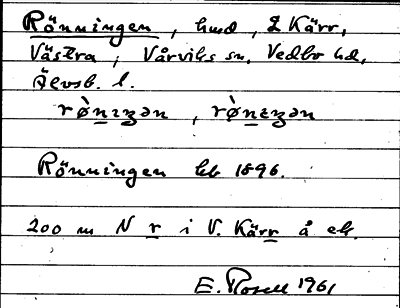 Rönningen, hmd, Z Kärr,
Västra, Vårviks sn, Vedbo hd,
Älvsb. l.
rø̀nıŋən, rø̀nɛŋən
Rönningen hb 1896.
200 m N r i V. Kärr å ek.
E. Rosell 1961